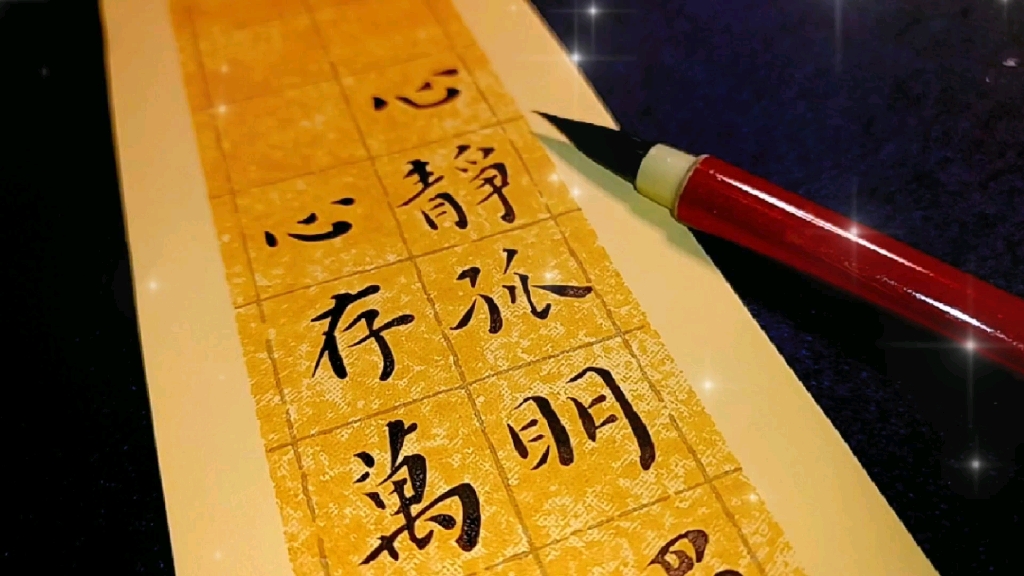 心靜孤明
心存萬